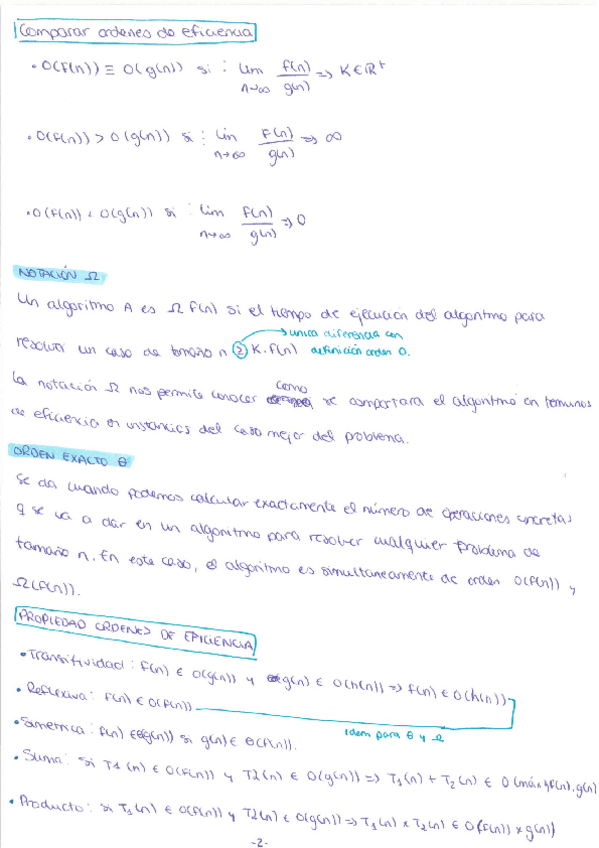 Comparar ordenes de eficiencia
• O(f(n)) ≡ O(g(n)) si : lim n→∞ f(n)/g(n) => K ∈ ℝ⁺
• O(f(n)) > O(g(n)) si : lim n→∞ f(n)/g(n) => ∞
• O(f(n)) < O(g(n)) si : lim n→∞ f(n)/g(n) => 0
NOTACIÓN Ω
Un algoritmo A es Ω f(n) si el tiempo de ejecución del algoritmo para
→ unica diferencia con
resolver un caso de tamaño n ≥ K.f(n) definición orden O.
La notación Ω nos permite conocer como se comportara el algoritmo en terminos
de eficiencia en instancias del caso mejor del problema.
ORDEN EXACTO θ
Se da cuando podemos calcular exactamente el número de operaciones concretas
q se va a dar en un algoritmo para resolver cualquier problema de
tamaño n. En este caso, el algoritmo es simultaneamente de orden O(f(n)) y
Ω(f(n)).
PROPIEDAD ORDENES DE EFICIENCIA
• Transitividad : f(n) ∈ O(g(n)) y g(n) ∈ O(h(n)) => f(n) ∈ O(h(n))
• Reflexiva : f(n) ∈ O(f(n))
Idem para θ y Ω
• Simetrica : f(n) ∈ θ(g(n)) si g(n) ∈ θ(f(n)).
• Suma : si T1(n) ∈ O(f(n)) y T2(n) ∈ O(g(n)) => T1(n) + T2(n) ∈ O(máx{f(n), g(n)
• Producto : si T1(n) ∈ O(f(n)) y T2(n) ∈ O(g(n)) => T1(n) x T2(n) ∈ O(f(n)) x g(n))
-2-